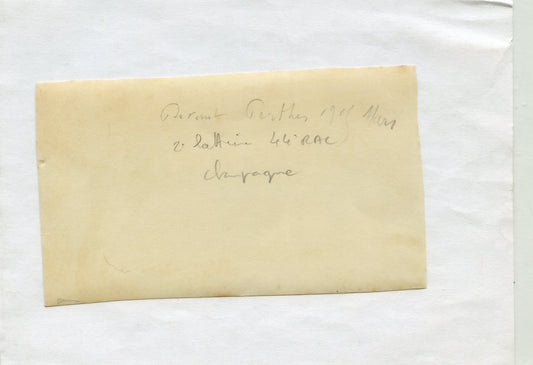 Devant Perthes 1915 Mars
2e batterie 44e RAC
Champagne